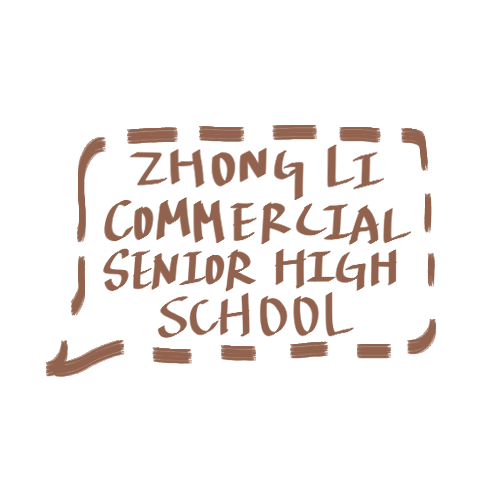 ZHONG LI
COMMERCIAL
SENIOR HIGH
SCHOOL